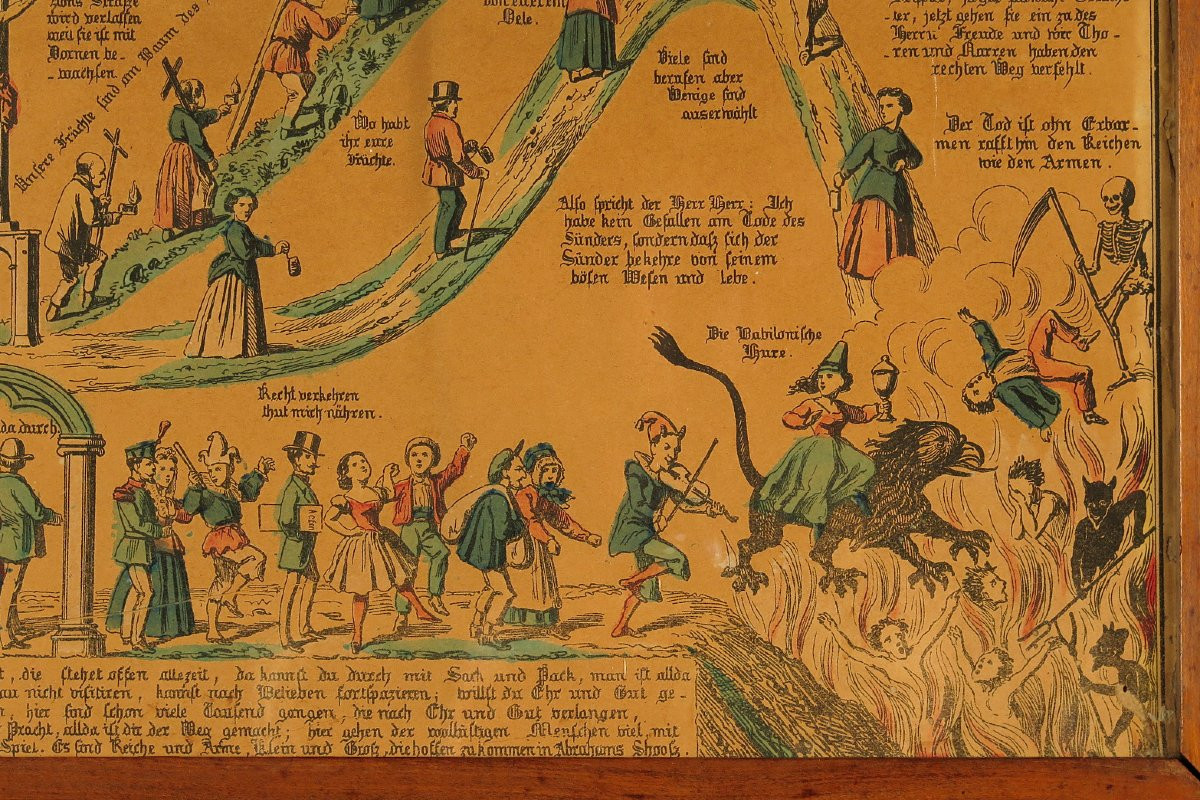 Straße
wird verlassen
weil sie ist mit
Dornen be-
-wachsen
Unsere Früchte sind am Baum des
von eurem
Oele.
Wo habt
ihr eure
Früchte.
Viele sind
berufen aber
Wenige sind
auserwählt
-ter, jetzt gehen sie ein zu des
Herrn Freude und wir Tho-
-ren und Narren haben den
rechten Weg verfehlt.
Der Tod ist ohn Erbar-
men rafft hin den Reichen
wie den Armen.
Also spricht der Herr Herr: Ich
habe kein Gefallen am Tode des
Sünders, sondern daß sich der
Sünder bekehre von seinem
bösen Wesen und lebe.
Die Babilonische
Hure.
Recht verkehren
thut mich nähren.
da durch.
, die stehet offen allezeit, da kannst du durch mit Sack und Pack, man ist allda
nicht visitiren, kannst nach Belieben fortspazieren; willst du Ehr und Gut ge-
, hier sind schon viele Tausend gangen, die nach Ehr und Gut verlangen,
Pracht, allda ist dir der Weg gemacht; hier gehen der wollüstigen Menschen viel, mit
Spiel. Es sind Reiche und Arme, Klein und Groß, die hoffen zu kommen in Abrahams Shooß,